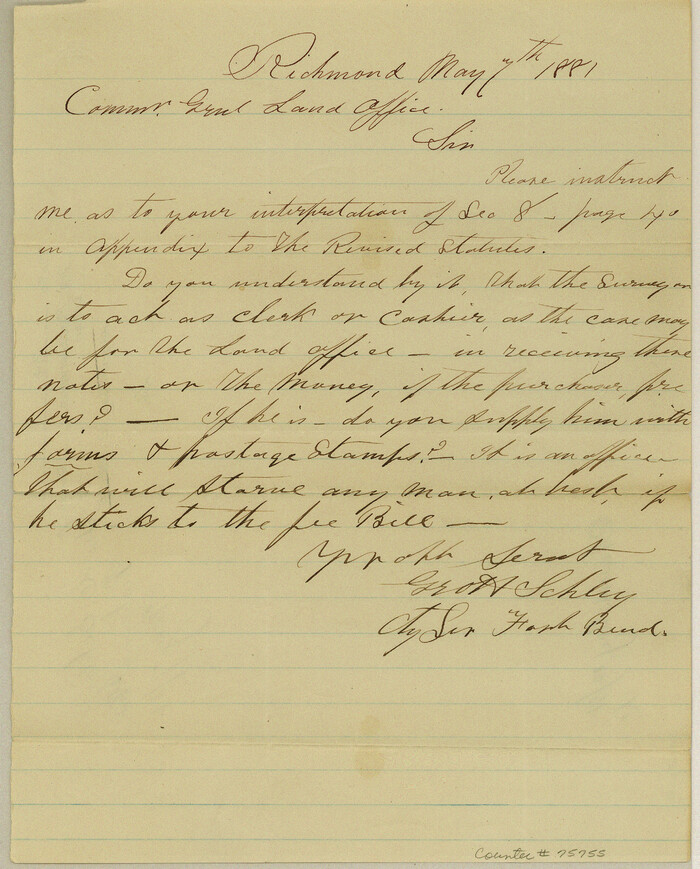 Richmond May 7th 1881
Commr. Genl Land Office.
Sir
Please instruct
me as to your interpretation of Sec 8 - page 40
in appendix to the Revised Statutes.
Do you understand by it, that the Surveyor
is to act as clerk or cashier, as the case may
be for the Land office - in receiving these
notes - or the money, if the purchaser, pre
fers? — If he is - do you supply him with
forms & postage stamps? - It is an office
that will starve any man, at best, if
he sticks to the fee Bill —
Yr obt Servt
Geo H Schley
Cty Sur Fort Bend.
Counter # 75755